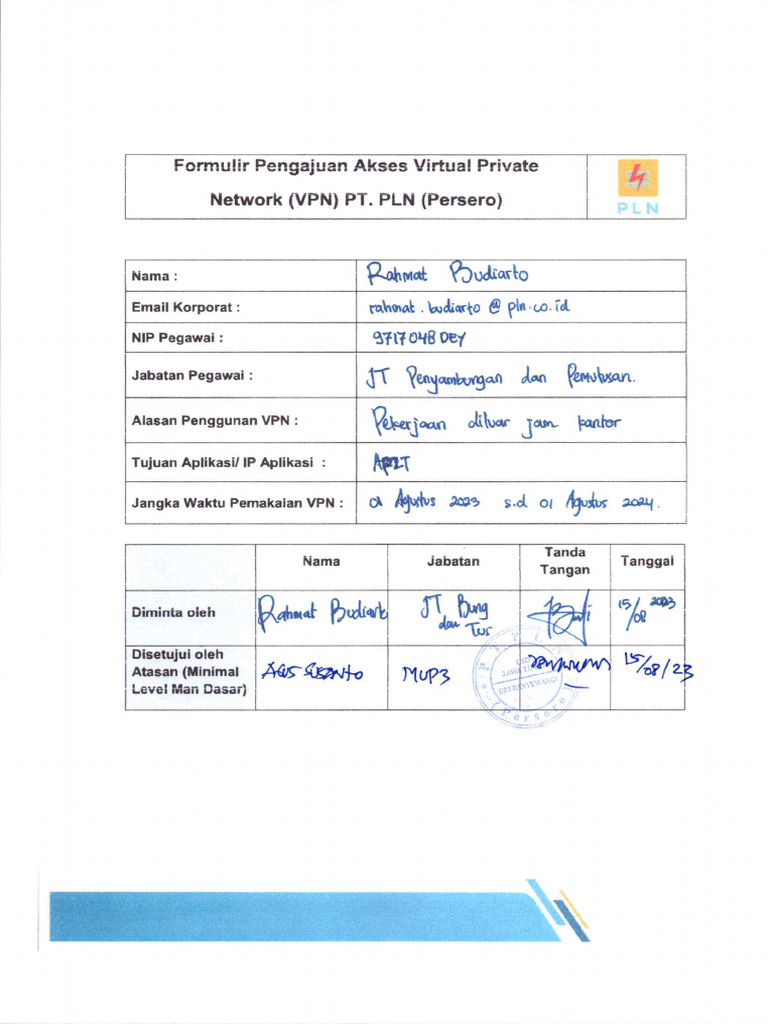 Formulir Pengajuan Akses Virtual Private
Network (VPN) PT. PLN (Persero)
PLN
Nama : Rahmat Budiarto
Email Korporat : rahmat.budiarto@pln.co.id
NIP Pegawai : 9717048DEY
Jabatan Pegawai : JT Penyambungan dan Pemutusan.
Alasan Penggunan VPN : Pekerjaan diluar jam kantor
Tujuan Aplikasi/ IP Aplikasi :
Jangka Waktu Pemakaian VPN : 01 Agustus 2023 s.d 01 Agustus 2024.
Nama Jabatan Tanda Tangan Tanggal
Diminta oleh Rahmat Budiarto JT Bung dan Tus 15/08 2023
Disetujui oleh
Atasan (Minimal Agus Susanto MUP3 15/08/23
Level Man Dasar)
PT PLN
UID
JAWA TIMUR
UP3 BANYUWANGI
(Persero)